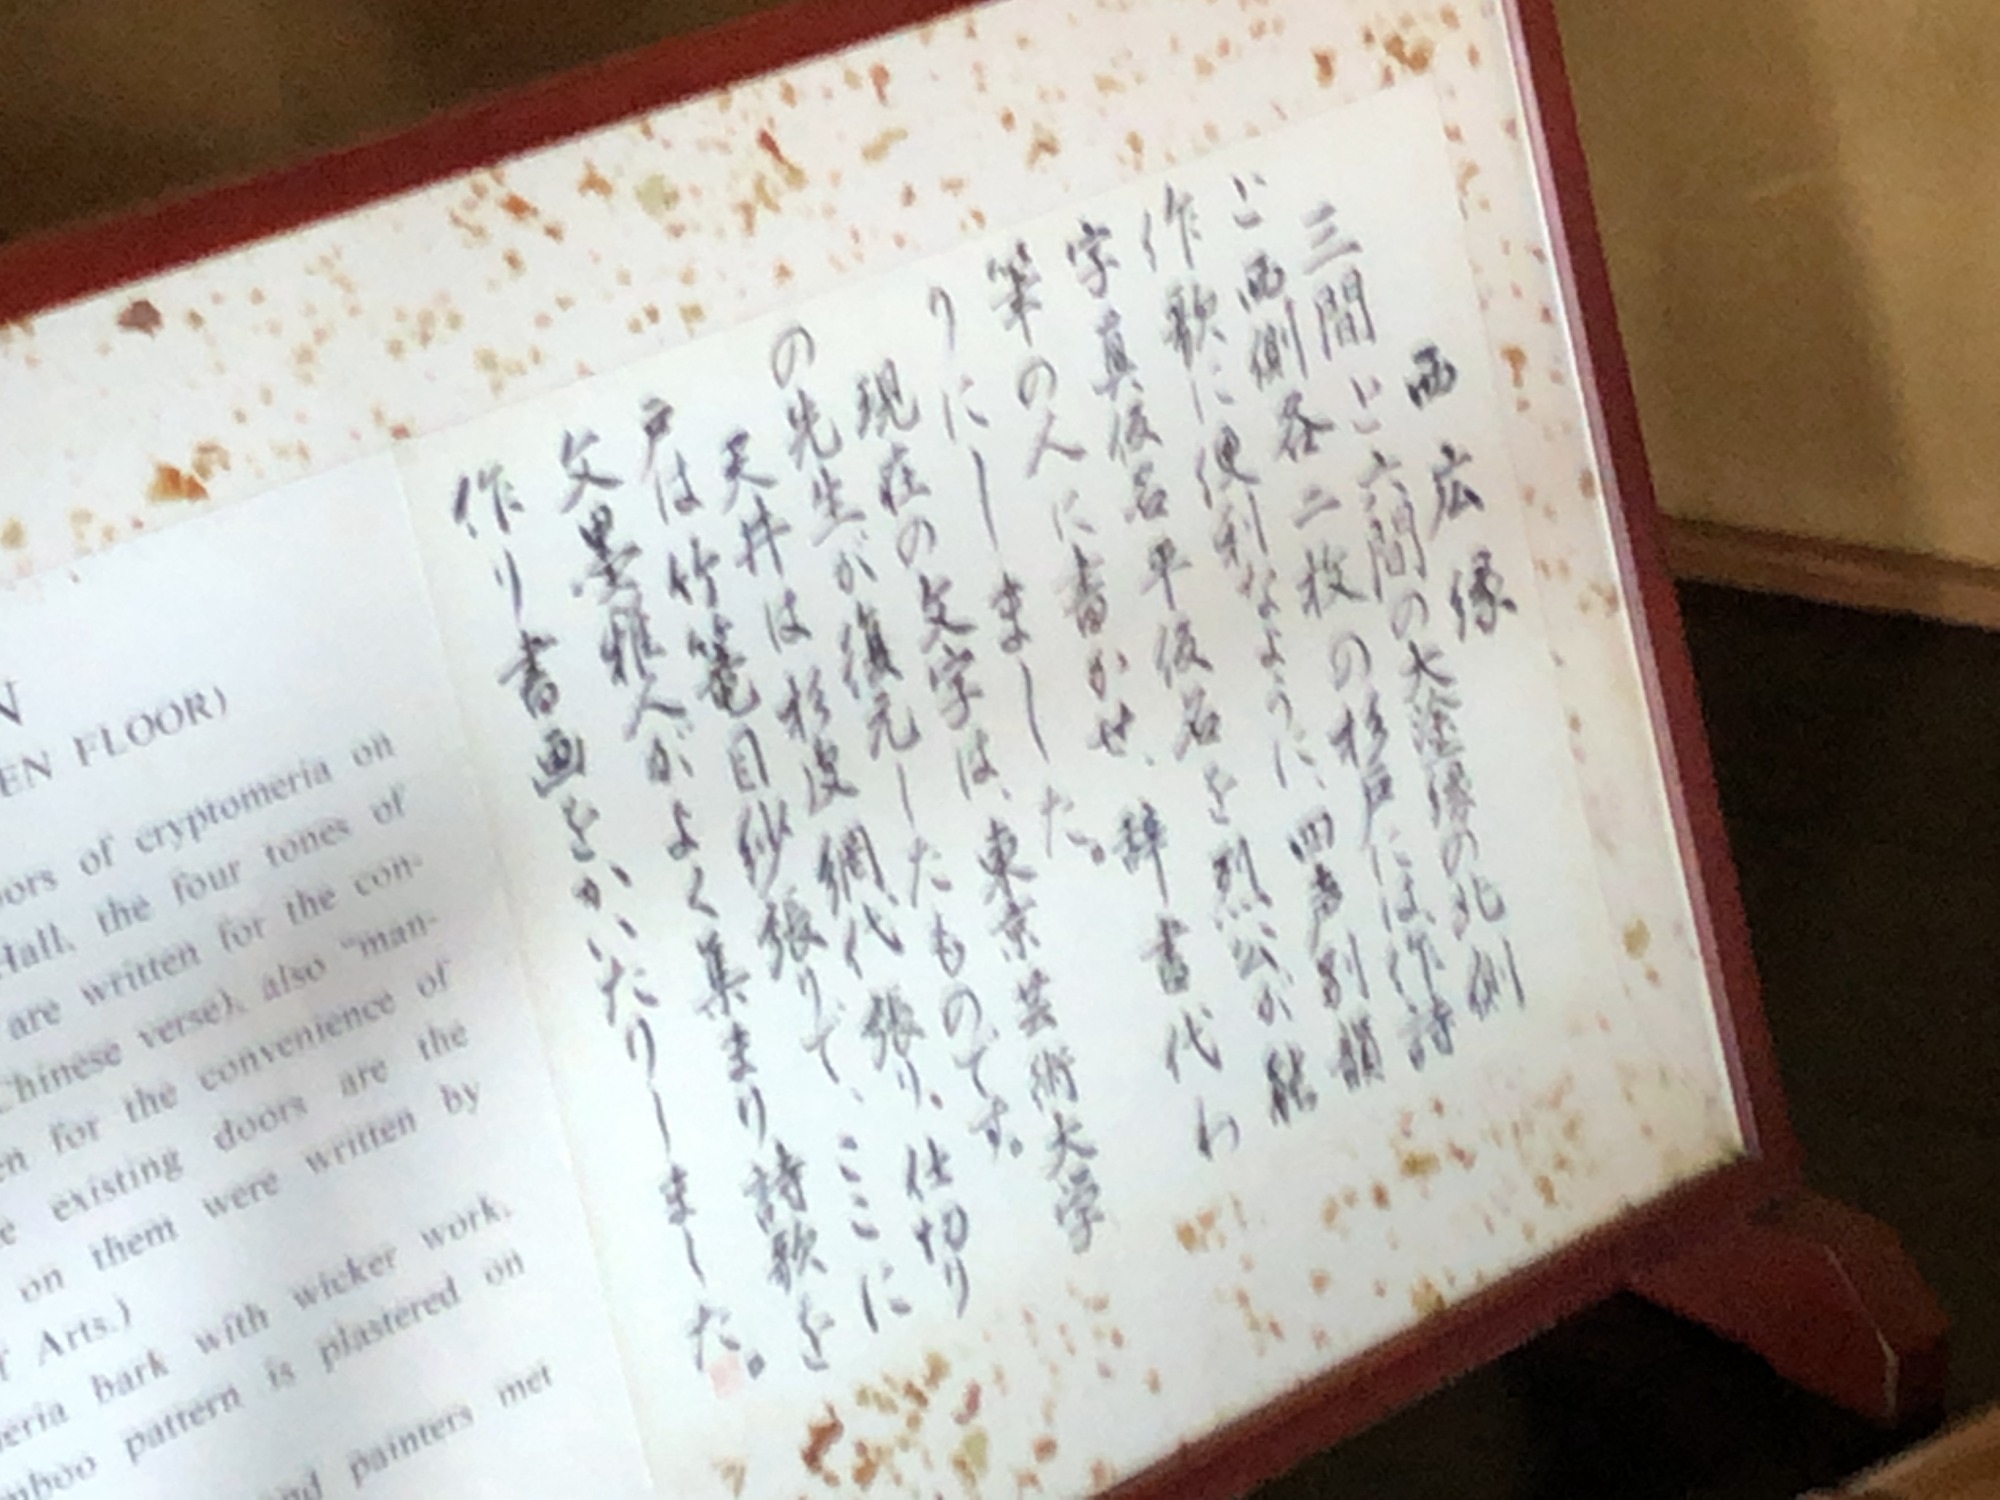 西広縁
三間と六間の大塗縁の北側
と西側各二枚の杉戸には、作詩
作歌に便利なように、四声別韻
字真仮名平仮名を烈公が能
筆の人に書かせ、辞書代わ
りにしました。
現在の文字は、東京芸術大学
の先生が復元したものです。
天井は杉皮網代張り、仕切り
戸は竹篭目紗張りで、ここに
文墨雅人がよく集まり詩歌を
作り書画をかいたりしました。
N
EN FLOOR)
oors of cryptomeria on
Hall, the four tones of
are written for the con-
Chinese verse), also "man-
en for the convenience of
e existing doors are the
on them were written by
f Arts.)
eria bark with wicker work,
mboo pattern is plastered on
nd painters met